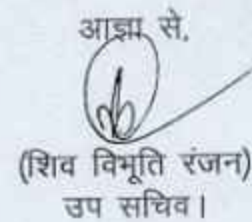 आज्ञा से,
(शिव विभूति रंजन)
उप सचिव।